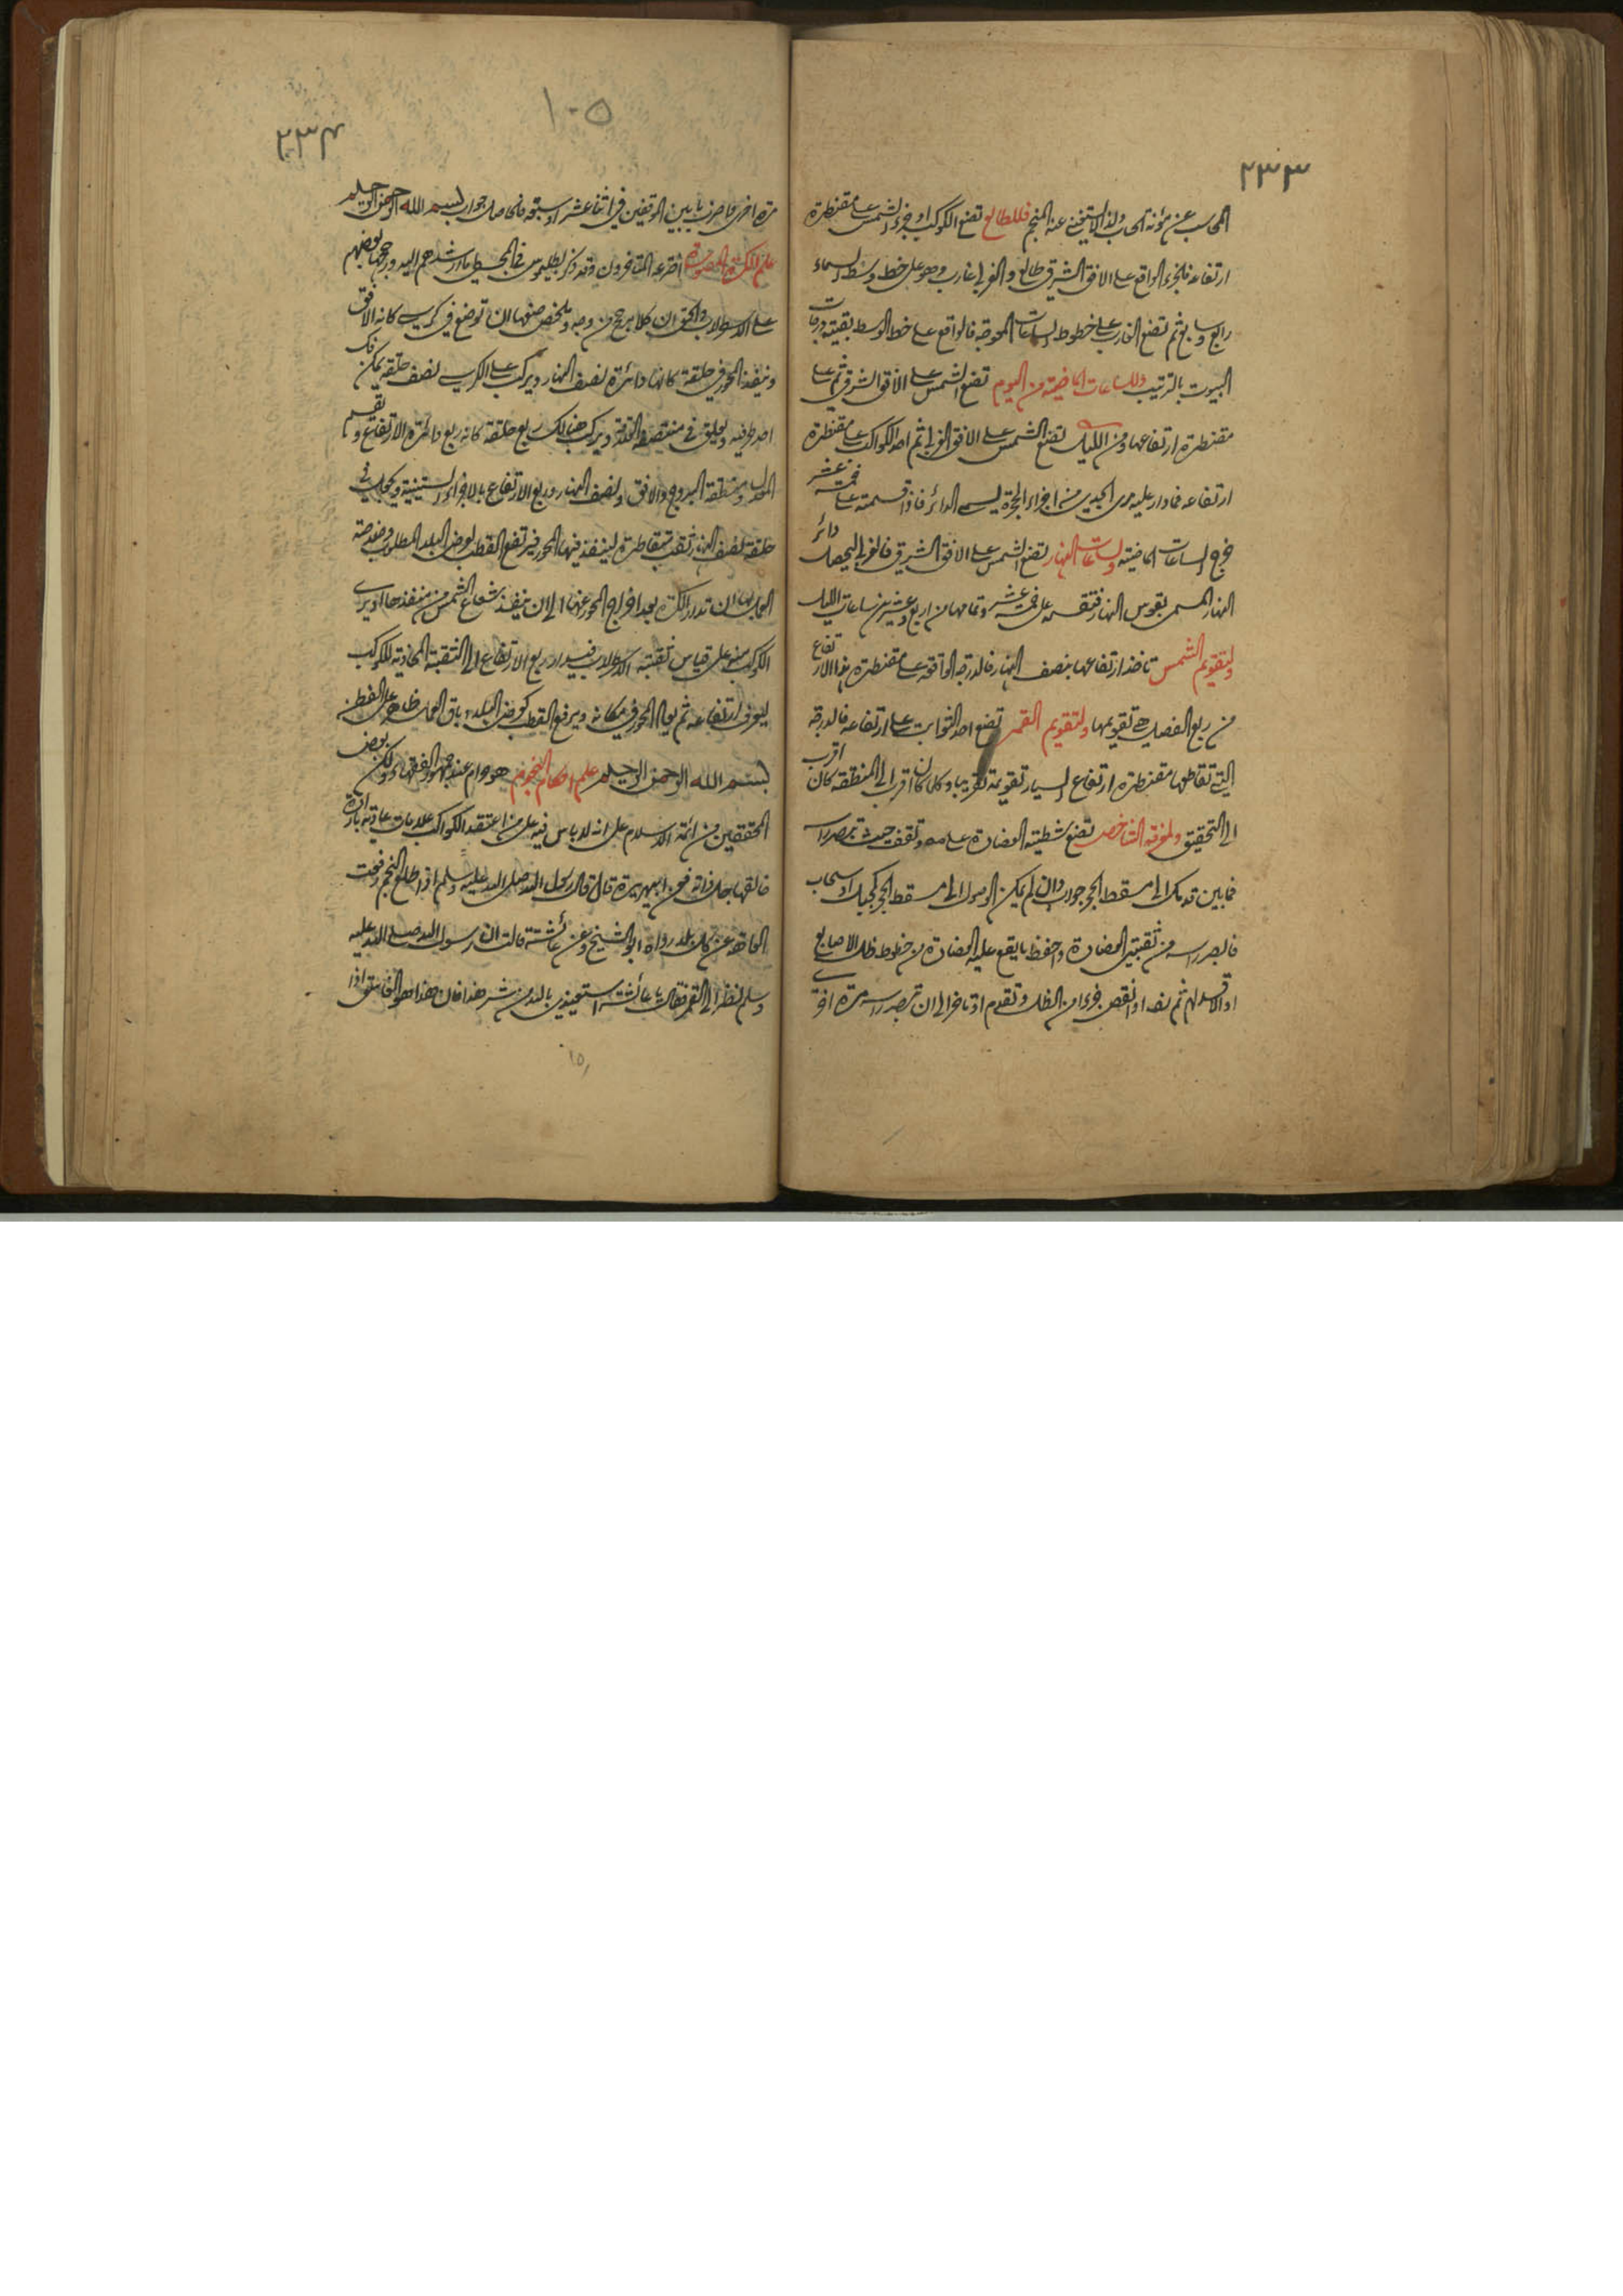 ٢٣٣
المحاسب عن مؤنة الحساب ولذا لا يستغنى عنه المنجم فللطالع تضع الكوكب او جزء الشمس على مقنطرة
ارتفاعه فالجزء الواقع على الافق الشرقي طالع والغربي غارب وهو على خط وسط السماء
رابع وسابع ثم تضع الغارب على خطوط الساعات المعوجة فالواقع على خط الوسط بقية درجات
البيوت بالترتيب وللساعات الماضية من اليوم تضع الشمس على الافق الشرقي ثم على
مقنطرة ارتفاعها ومن الليل تضع الشمس على الافق الغربي ثم احد الكواكب على مقنطرة
ارتفاعه فما دار عليه مرى الجدي من اجزاء الحجرة يسمى الدائر فاذا قسمته على خمسة عشر
خرج الساعات الماضية ولساعات النهار تضع الشمس على الافق الشرقي فالغربي ليحصل دائر
النهار المسمى بقوس النهار فتقسمه على خمسة عشر وتمامها من اربع وعشرين ساعات الليل
ولتقويم الشمس تاخذ ارتفاعها بنصف النهار فالدرجة الواقعة على مقنطرة هذا الارتفاع
من ربع الفصل هي تقويمها ولتقويم القمر تضع احد الثوابت على ارتفاعه فالدرجة
التي تقاطعها مقنطرة ارتفاع السيار تقويمه تقريبا وكلما كان اقرب الى المنطقة كان اقرب
الى التحقيق ولمعرفة الشاخص تضع شظية العضادة على مه وتقف حيث تبصر راسه
فما بين قدمك الى مسقط الحجر جواب وان لم يكن الوصول الى مسقط الحجر كجبل او سحاب
فابصر راسه من ثقبتي العضادة واحفظ ما يقع عليه العضادة من خطوط ظل الاصابع
او الاقدام ثم تضع او انقص جزءا من الظل وتقدم او تاخر الى ان تبصر راسه مرة اخرى
١٠٥
٢٣٤
مرة اخرى فاضرب ما بين الموقفين في اثنا عشر او سبعة فالحاصل جواب بسم الله الرحمن الرحيم
علم الكرة اخترعه المتاخرون وقد ذكر بطليموس في المجسطي ما ارشدهم اليه ورجحها بعضهم
على الاسطرلاب والحق ان كلا يرجح من وجه وملخص صنعها ان توضع في كرسي كانه الافق
وينفذ المحور في حلقة كانها دائرة نصف النهار ويركب على الكرسي نصف حلقة يمكن فك
احد طرفيه ويعلق في منتصفه ويركب هنالك ربع حلقة كانه ربع دائرة الارتفاع ويقسم
المعدل ومنطقة البروج والافق ونصف النهار وربع الارتفاع بالاجزاء الستينية ويجعل في
حلقة نصف النهار ثقب متقاطرة لينفذ فيها المحور فيرتفع القطب لعرض البلد المطلوب
العمل بها ان تدور الكرة بعد اخراج المحور عنها الى ان ينفذ شعاع الشمس من منفذها او يرى
الكوكب منه على قياس ثقبة الاسطرلاب فيدار ربع الارتفاع الى الثقبة المحاذية للكوكب
ليعرف ارتفاعه ثم يعاد المحور في مكانه ويرفع القطب كعرض البلد وباقي العمل ظاهر على الفطن
بسم الله الرحمن الرحيم علم احكام النجوم هو حرام عند جمهور الفقهاء ولكن بعض
المحققين من ائمة الاسلام على انه لا باس فيه على من اعتقد الكواكب علامات عادية بارادة
خالقها جل ذاته فعن ابي هريرة قال قال رسول الله صلى الله عليه وسلم اذا طلع النجم رفعت
العاهة عن كل بلد رواه ابو الشيخ وعن عائشة قالت ان رسول الله صلى الله عليه
وسلم نظر الى القمر فقال يا عائشة استعيذي بالله من شر هذا فان هذا هو الغاسق اذا